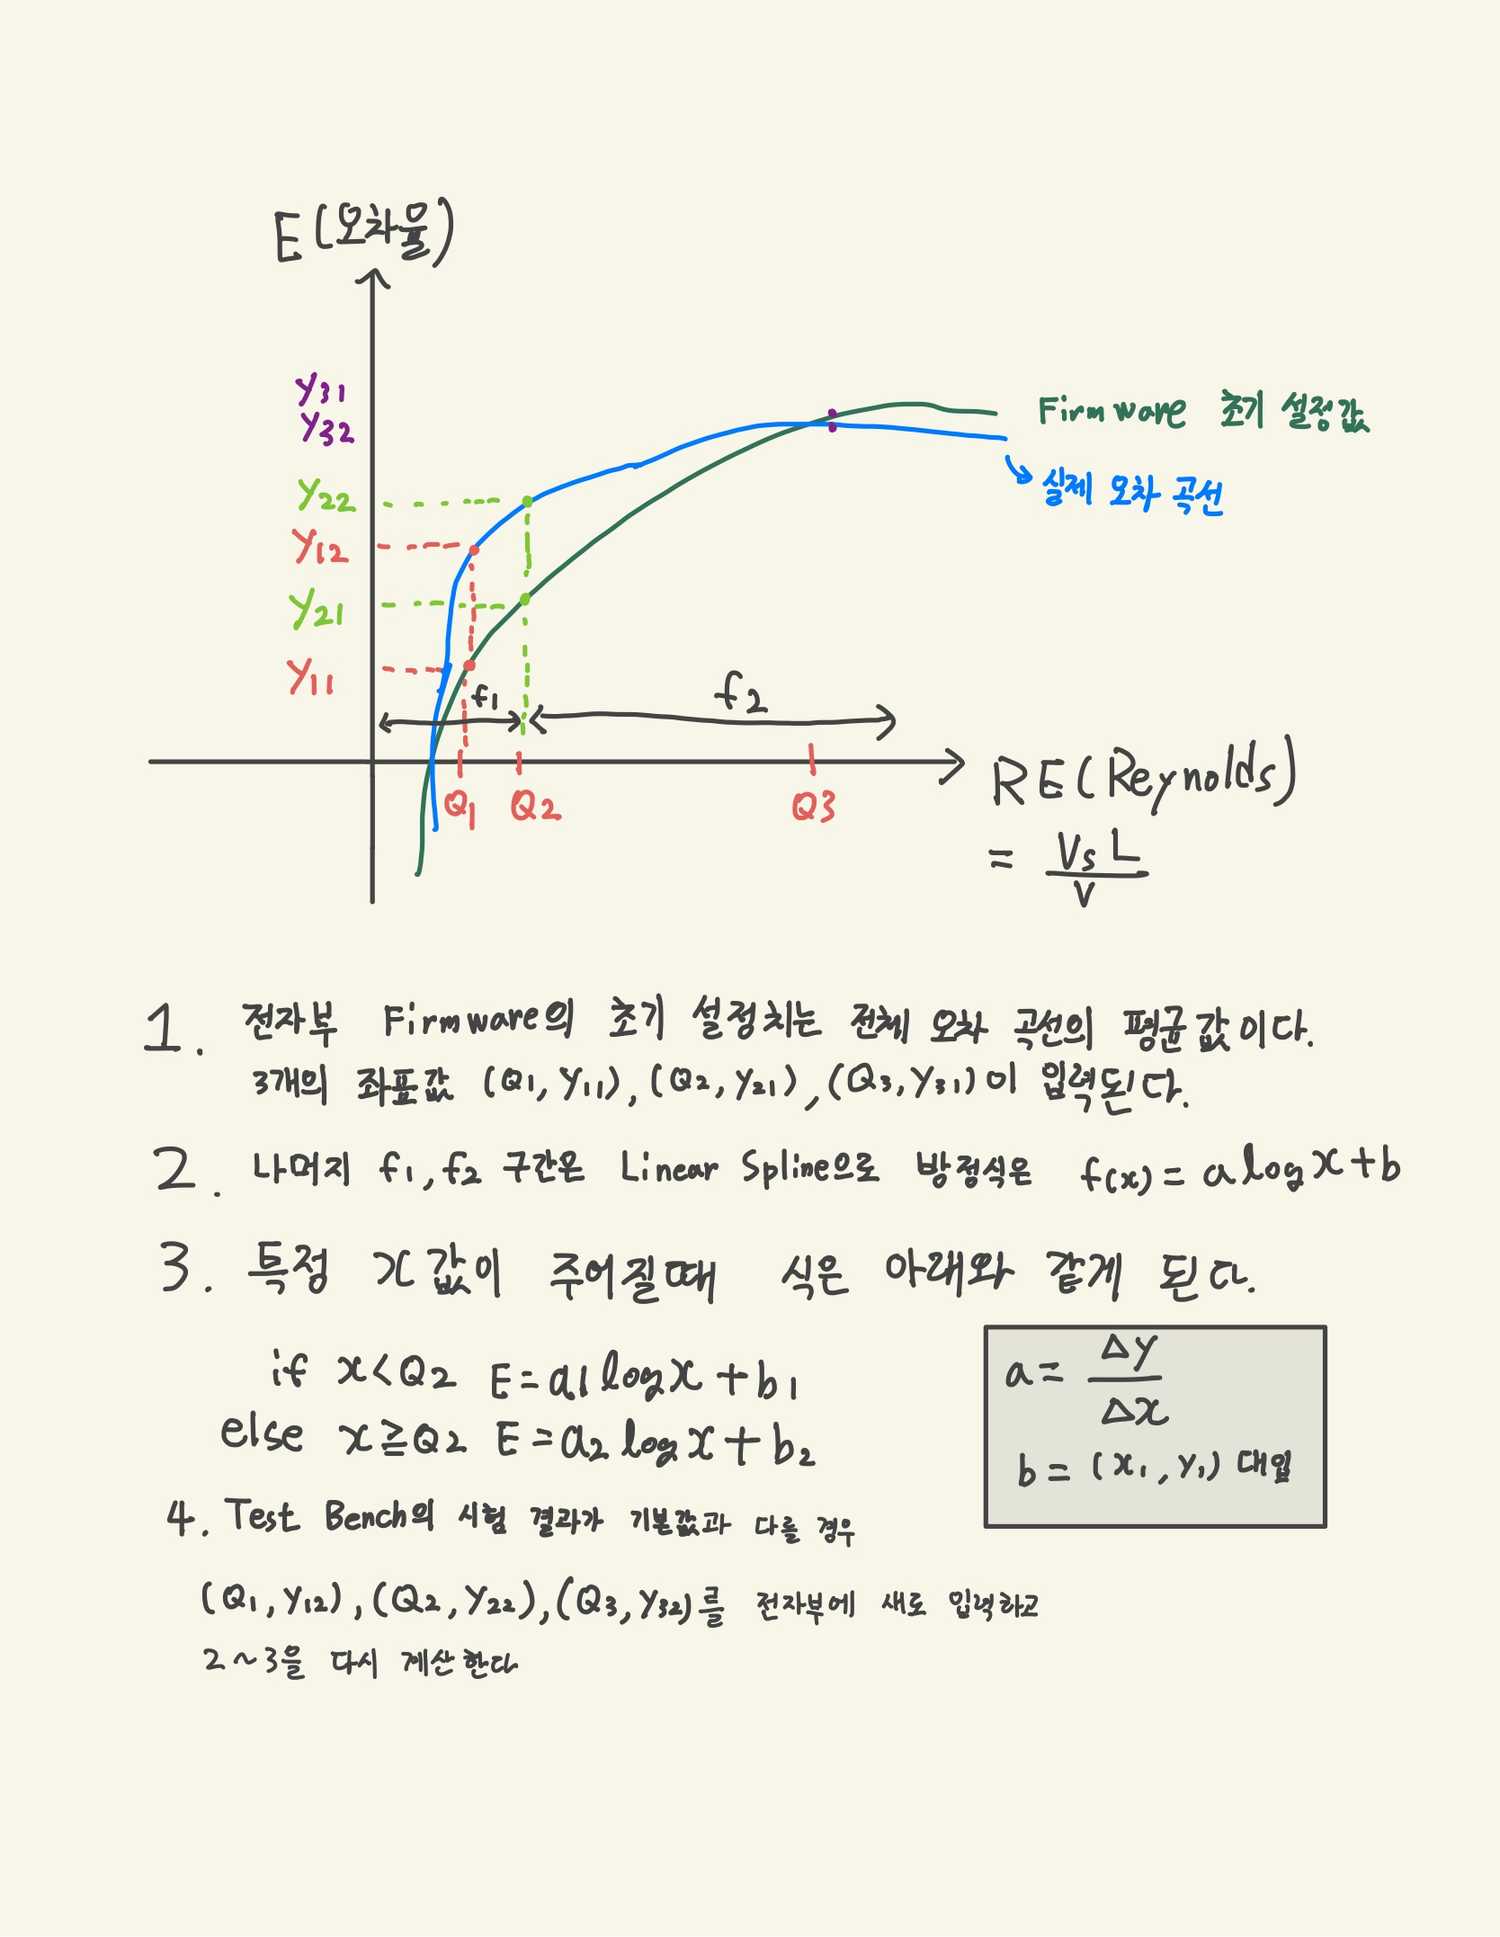 E(오차율)
y31
y32
y22
y12
y21
y11
Firmware 초기 설정값
실제 오차 곡선
f1
f2
Q1
Q2
Q3
RE(Reynolds)
= VsL
V
1. 전자부 Firmware의 초기 설정치는 전체 오차 곡선의 평균값이다.
3개의 좌표값 (Q1, y11), (Q2, y21), (Q3, y31)이 입력된다.
2. 나머지 f1, f2 구간은 Linear Spline으로 방정식은 f(x) = a log x + b
3. 특정 x값이 주어질때 식은 아래와 같게 된다.
if x < Q2 E = a1 log x + b1
else x ≧ Q2 E = a2 log x + b2
a = Δy
Δx
b = (x1, y1) 대입
4. Test Bench의 시험 결과가 기본값과 다를 경우
(Q1, y12), (Q2, y22), (Q3, y32)를 전자부에 새로 입력하고
2~3을 다시 계산한다